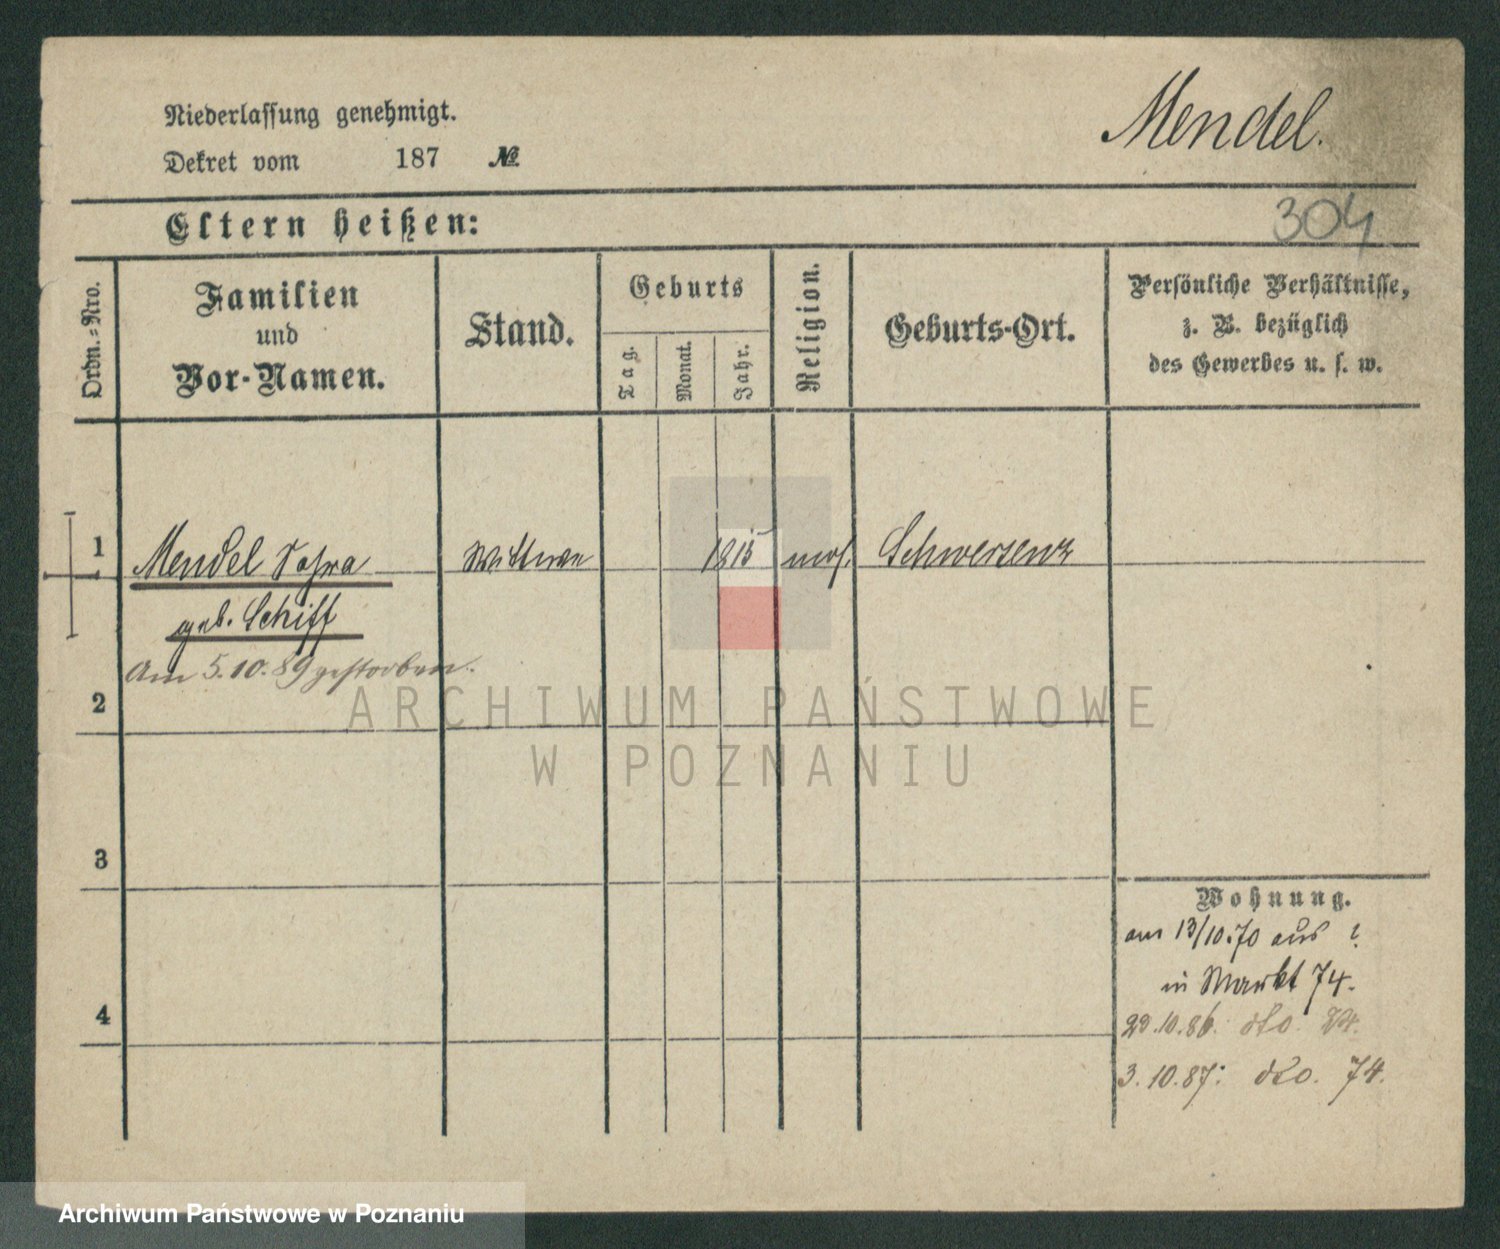 Niederlassung genehmigt.
Mendel.
Dekret vom 187 №
304
Eltern heißen:
Ordn.-Nro.
Familien
und
Vor-Namen.
Stand.
Geburts
Tag.
Monat.
Jahr.
Religion.
Geburts-Ort.
Persönliche Verhältnisse,
z. B. bezüglich
des Gewerbes u. s. w.
1 Mendel Wittwe 1815 mos. Schwersenz
geb. Schiff
Am 5.10.89 gestorben.
2
ARCHIWUM PAŃSTWOWE
W POZNANIU
3
Wohnung.
am 13/10.70 aus ?
in Markt 74.
4
.10.86. dto.
3.10.87: dto. 74.
Archiwum Państwowe w Poznaniu